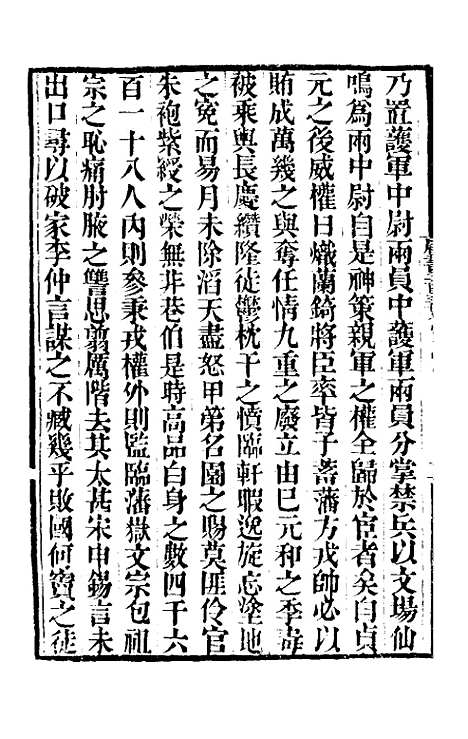 乃置護軍中尉兩員中護軍兩員分掌禁兵以文場仙
鳴為兩中尉自是神策親軍之權全歸於宦者矣自貞
元之後威權日熾蘭錡將臣率皆子蓄藩方戎帥必以
賄成萬幾之與奪任情九重之廢立由己元和之季毒
被乘輿長慶纘隆徒鬱枕干之憤臨軒暇逸旋忘塗地
之冤而易月未除滔天盡怒甲第名園之賜莫匪伶官
朱袍紫綬之榮無非巷伯是時高品白身之數四千六
百一十八人內則參秉戎權外則監臨藩嶽文宗包祖
宗之恥痛肘腋之讐思翦厲階去其太甚宋申錫言未
出口尋以破家李仲言謀之不臧幾乎敗國何竇之徒